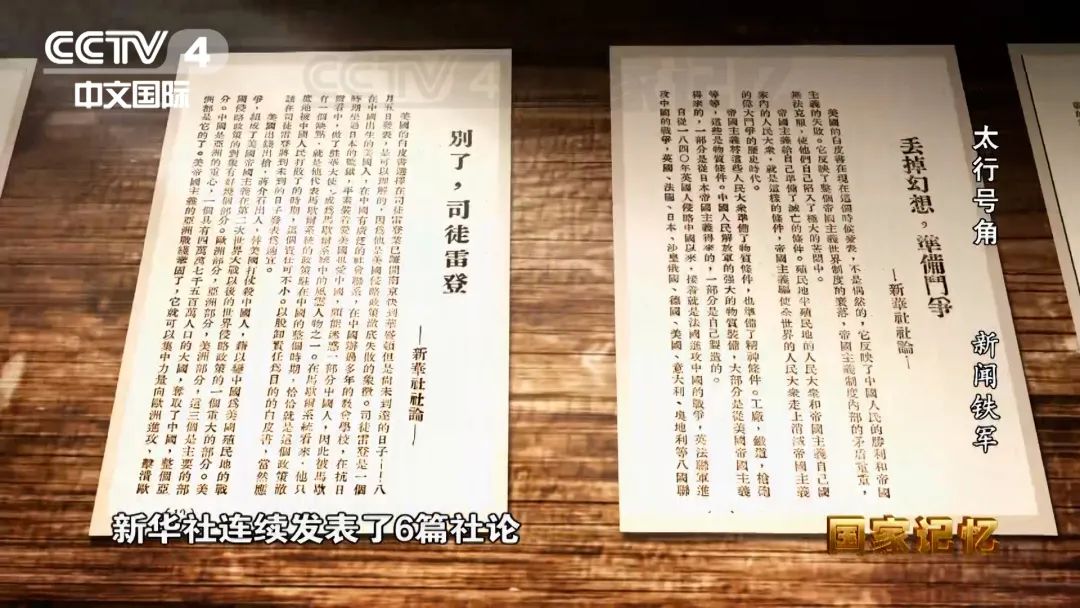 CCTV 4
中文国际
丢掉幻想，準備鬥爭
—新華社社論—
美國的白皮書在現在這個時候發表，不是偶然的，它反映了中國人民的勝利和帝國
主義的失敗。它反映了整個帝國主義世界制度的衰落，帝國主義制度內部的矛盾重重，
無法克服，使他們自己陷入了極大的苦悶中。
帝國主義給自己準備了滅亡的條件。殖民地半殖民地的人民大衆和帝國主義自己國
家內的人民大衆，就是這樣的條件，帝國主義驅使全世界的人民大衆走上消滅帝國主義
的偉大鬥爭的歷史時代。
帝國主義替這些人民大衆準備了物質條件，也準備了精神條件。工廠，鐵道，槍砲
等等，這些是物質條件。中國人民解放軍的強大的物質裝備，大部分是從美國帝國主義
得來的，一部分是從日本帝國主義得來的，一部分是自己製造的。
自從一八四〇年英國人侵略中國以來，接著就是法國進攻中國的戰爭，英法聯軍進
攻中國的戰爭，英國、法國、日本、沙皇俄國、德國、美國、意大利、奧地利等八國聯
別了，司徒雷登
—新華社社論—
美國的白皮書選擇在司徒雷登業已離開南京快到華盛頓但是尚未到達的日子——八
月五日發表，是可以理解的，因爲他是美國侵略政策徹底失敗的象徵。司徒雷登是一個
在中國出生的美國人，在中國有廣泛的社會聯系，在中國辦過多年的教會學校，在抗日
時期坐過日本的監獄，平素裝着愛美國也愛中國，頗能迷惑一部分中國人，因此被馬歇
爾看中，做了駐華大使，成爲馬歇爾系統中的風雲人物之一。在馬歇爾系統看來，他只
有一個缺點，就是他代表馬歇爾系統的政策駐在中國的整個時期，恰恰就是這個政策徹
底地被中國人民打敗了的時期，這個責任可不小。以脫卸責任爲目的的白皮書，當然應
該在司徒雷登將到未到的日子發表爲適宜。
美國出錢出槍，蔣介石出人，替美國打仗殺中國人，藉以變中國爲美國殖民地的戰
爭，組成了美國帝國主義在第二次世界大戰以後的世界侵略政策的一個重大的部分。美
國侵略政策的對象有好幾個部分。歐洲部分，亞洲部分，美洲部分，這三個是主要的部
分。中國是亞洲的重心，一個具有四萬萬七千五百萬人口的大國，奪取了中國，整個亞
洲都是它的了。美帝國主義的亞洲戰綫鞏固了，它就可以集中力量向歐洲進攻，擊潰歐
太行号角 新闻铁军
新华社连续发表了6篇社论
国家记忆